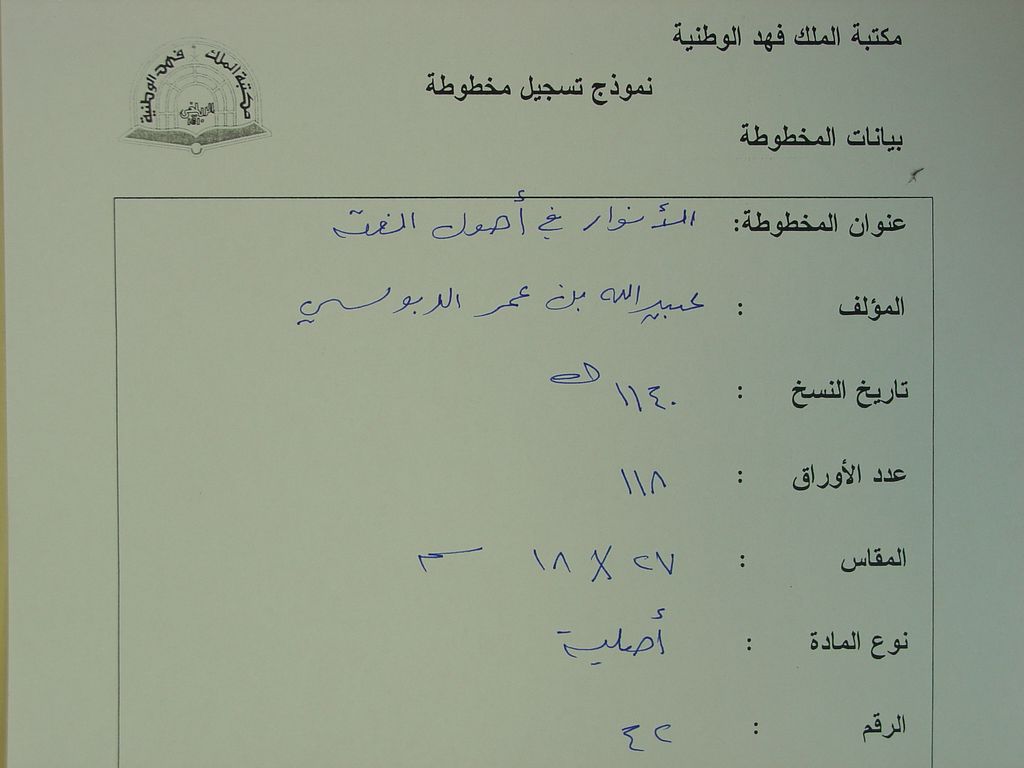 مكتبة الملك فهد الوطنية
مكتبة الملك فهد الوطنية
الرياض
نموذج تسجيل مخطوطة
بيانات المخطوطة
عنوان المخطوطة: الأنوار في أصول الفقه
المؤلف : عبيد الله بن عمر الدبوسي
تاريخ النسخ : ١١٤٠ هـ
عدد الأوراق : ١١٨
المقاس : ٢٧ X ١٨ سم
نوع المادة : أصلية
الرقم : ٤٢